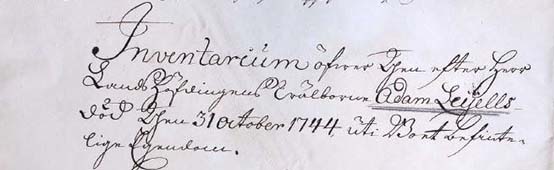 Inventarium öfwer Then efter Herr
Landshöfdingens Wälborne Adam Leijells
död Then 31 october 1744, uti Boet befinte-
lige Egendom.